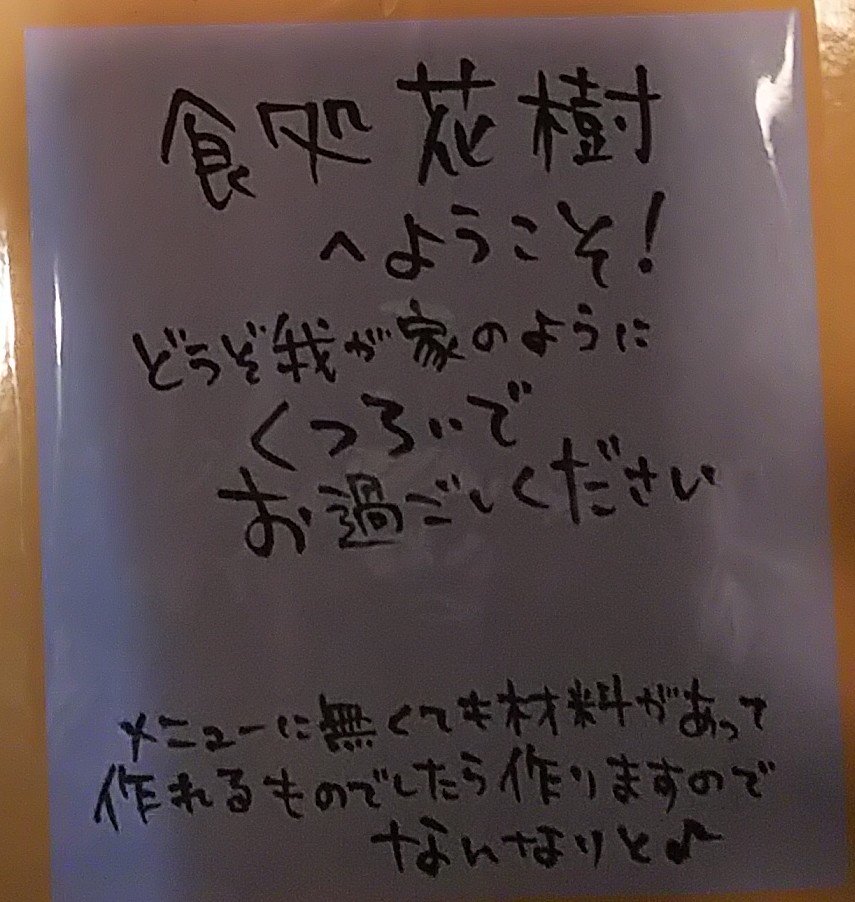 食処 花樹
へようこそ!
どうぞ我が家のように
くつろいで
お過ごしください
メニューに無くても材料があって
作れるものでしたら作りますので
なんなりと♪